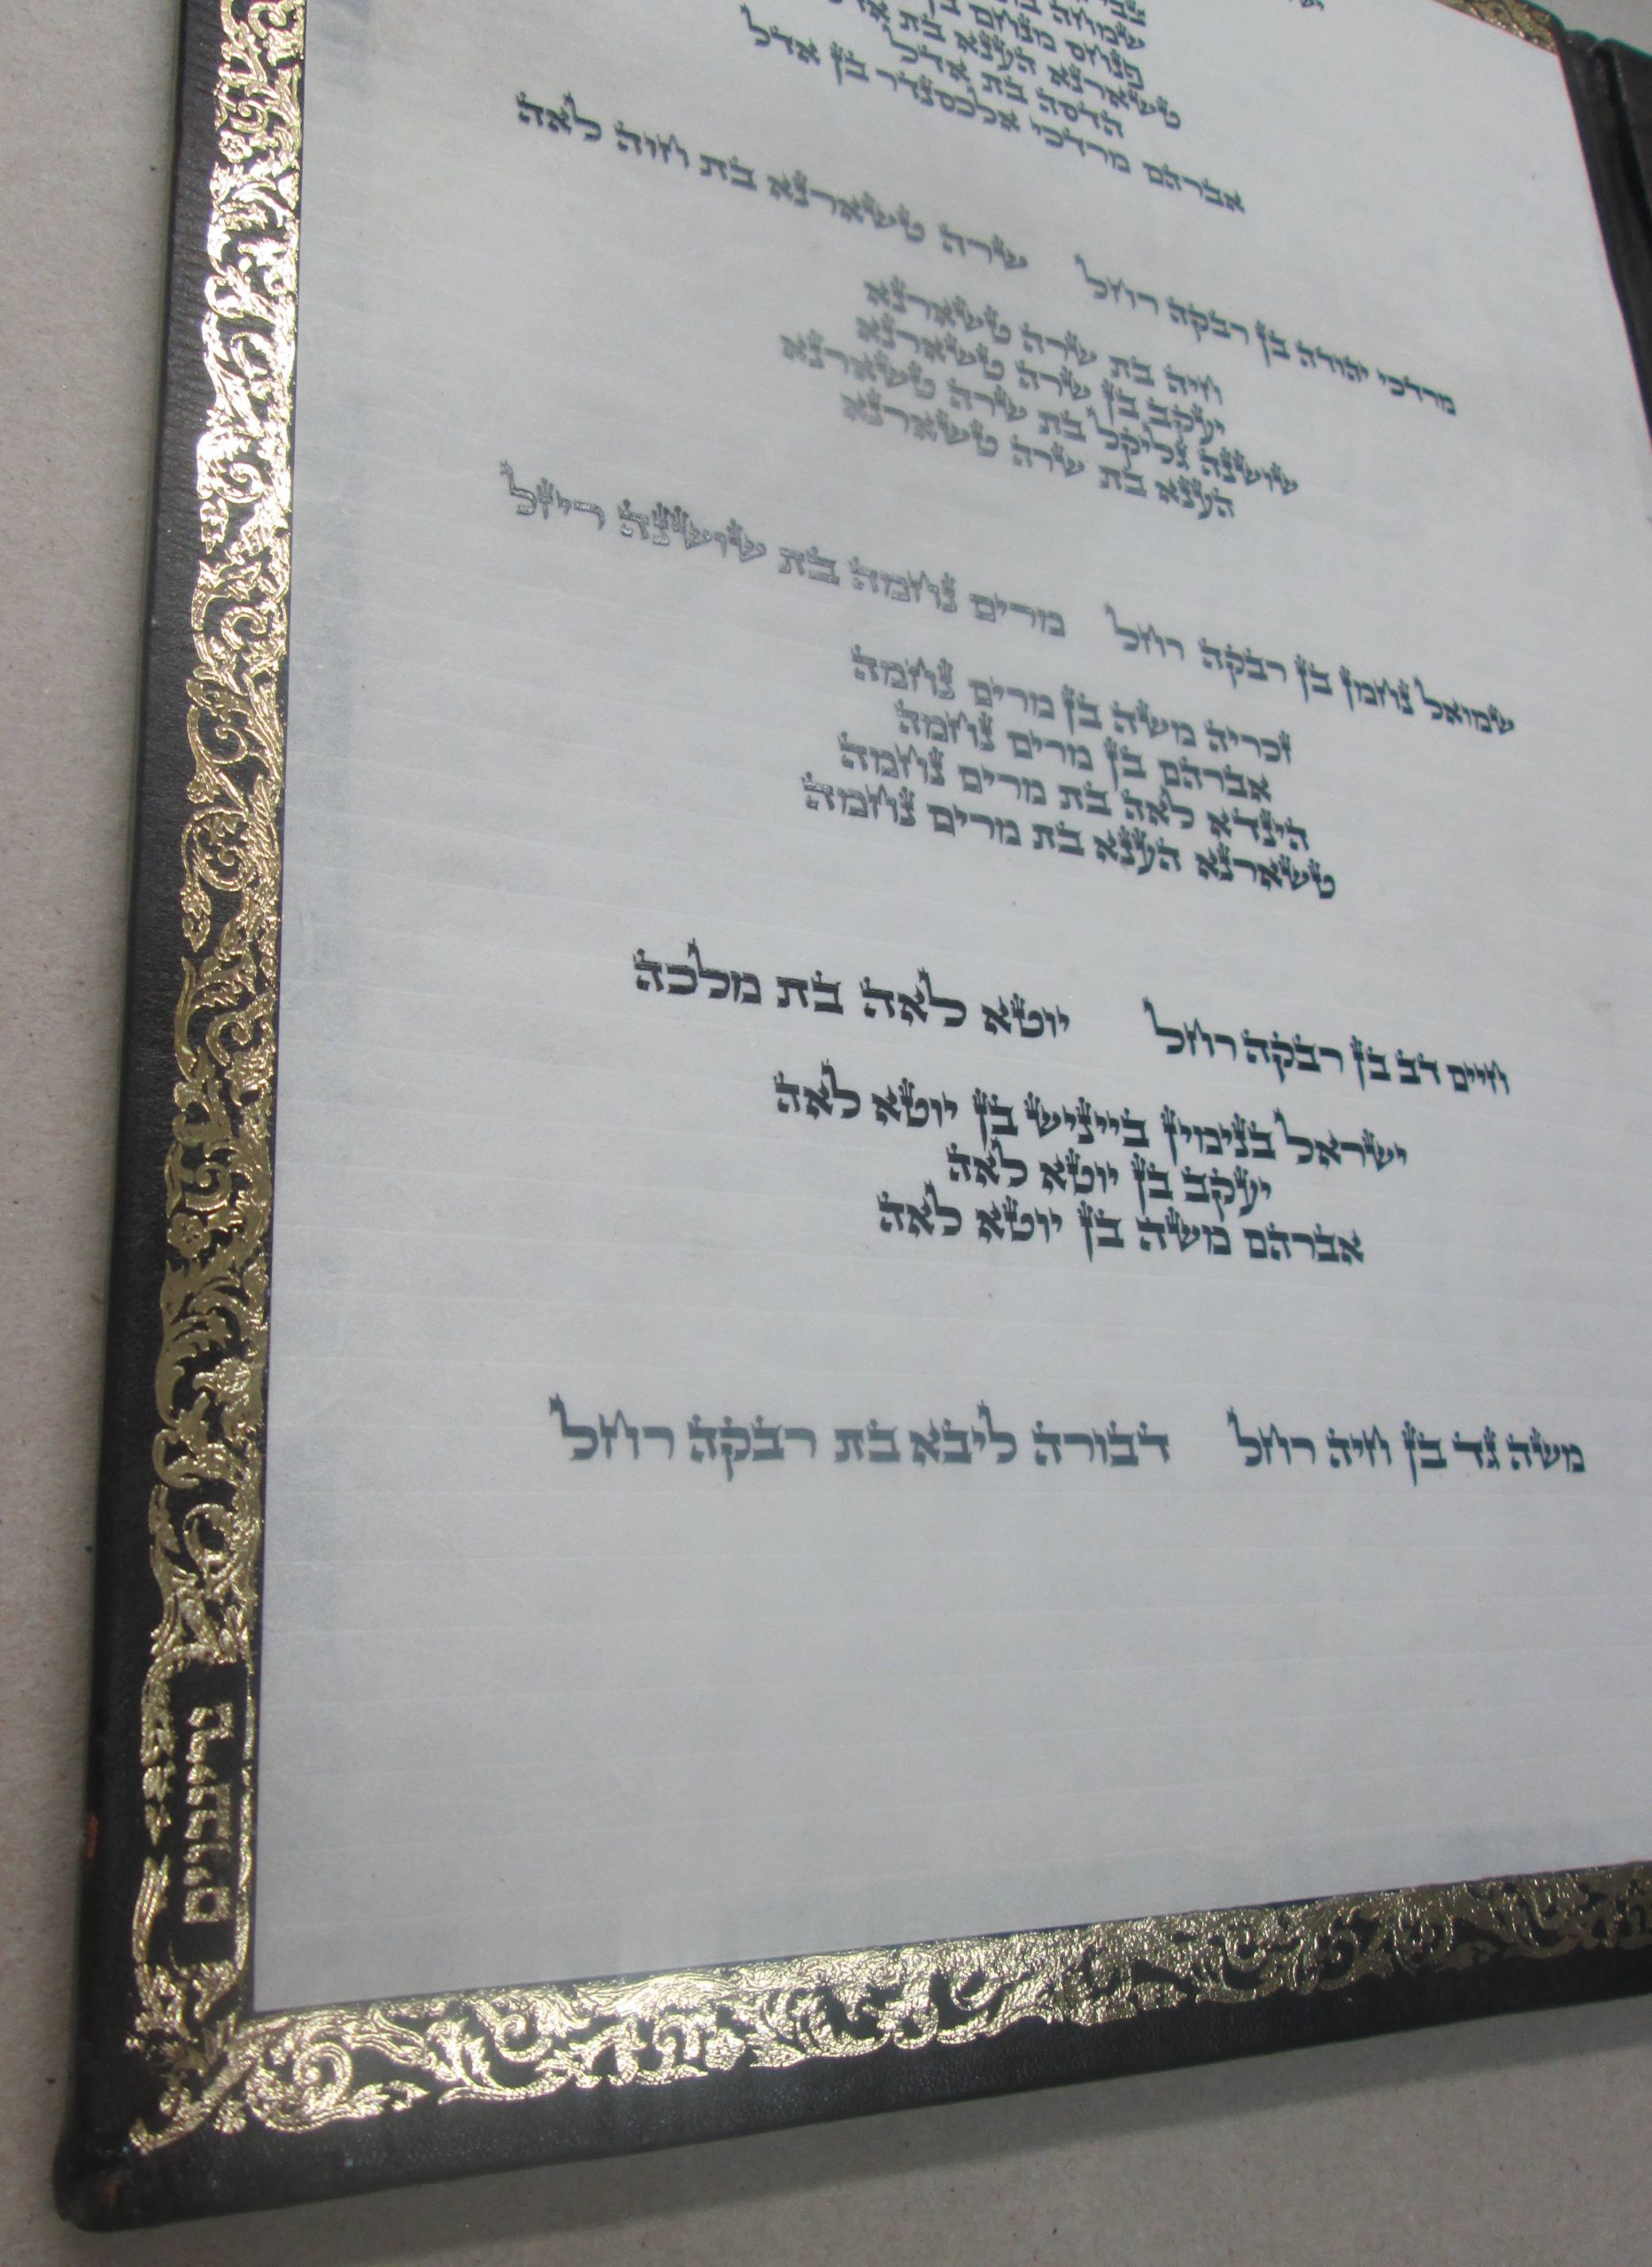 אברהם מרדכי אלכסנדר בן אדל
הדסה בת אדל
טשארנא הענא בת
מרדכי יהודה בן רבקה רוחל שרה טשארנא בת חוה לאה
חיה בת שרה טשארנא
יעקב בן שרה טשארנא
שושנה גליקל בת שרה טשארנא
הענא בת שרה טשארנא
שמואל נחמן בן רבקה רחל מרים נחמה בת שושנה רייזל
זכריה משה בן מרים נחמה
אברהם בן מרים נחמה
הינדא לאה בת מרים נחמה
טשארנא הענא בת מרים נחמה
חיים דב בן רבקה רחל יוטא לאה בת מלכה
ישראל בנימין ביינוש בן יוטא לאה
יעקב בן יוטא לאה
אברהם משה בן יוטא לאה
משה גד בן חיה רחל דבורה ליבא בת רבקה רחל